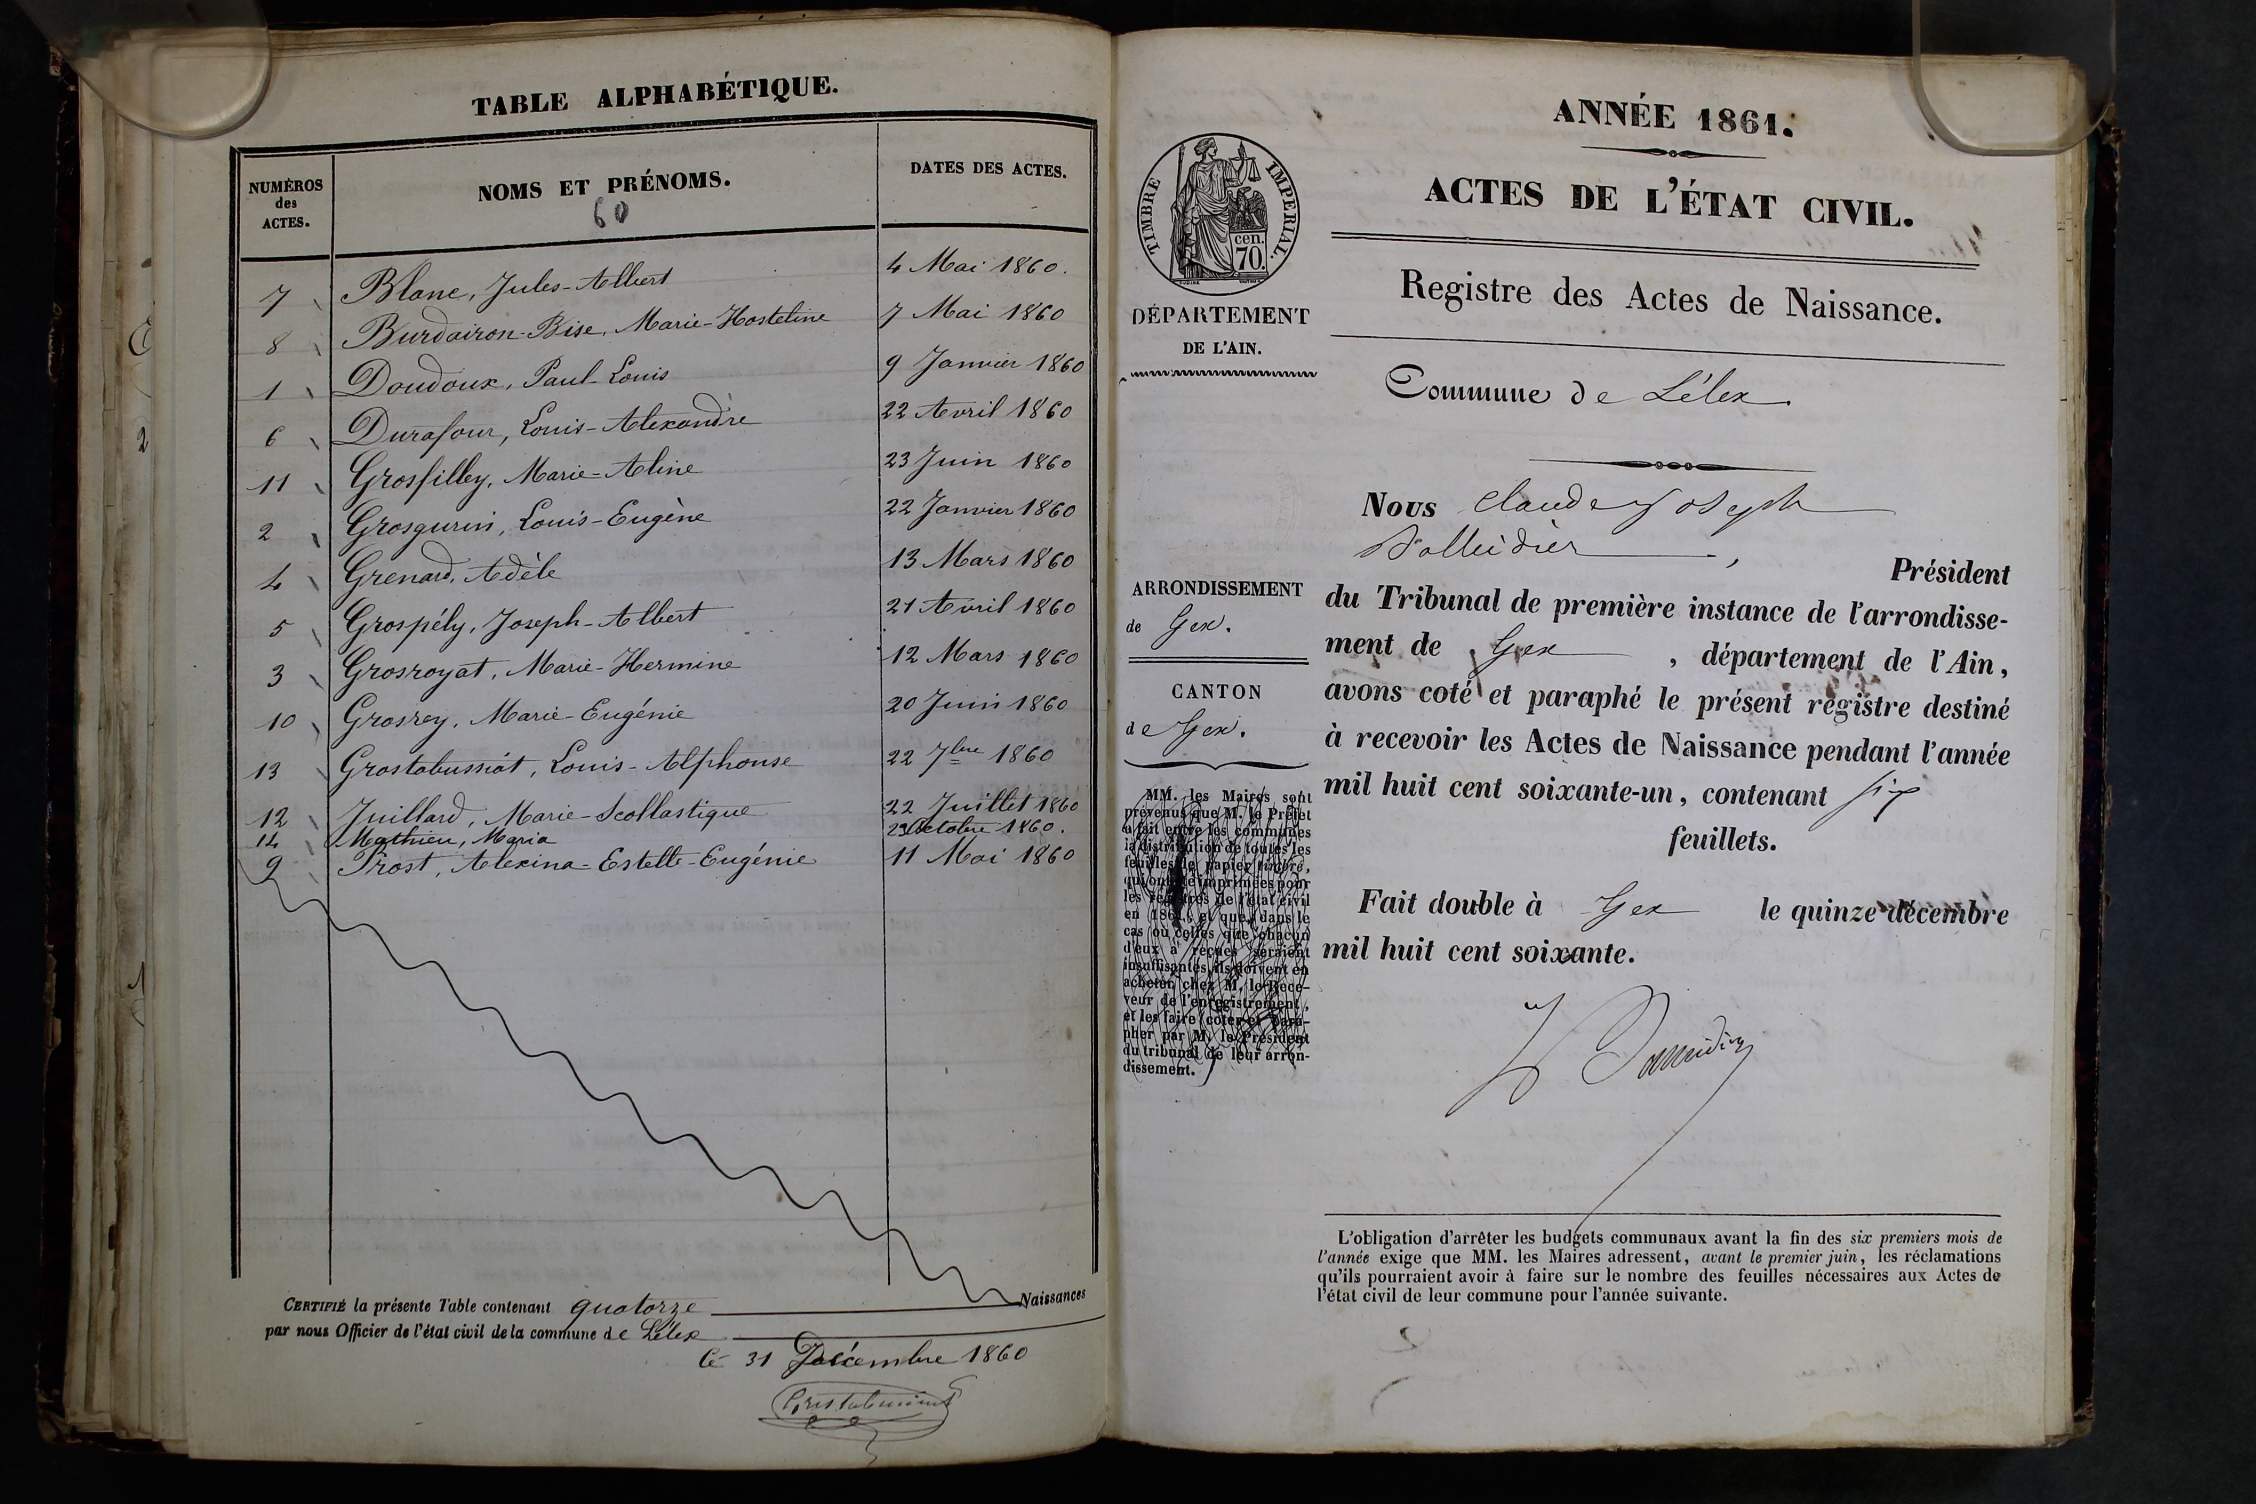 TABLE ALPHABÉTIQUE.
NUMÉROS des ACTES.
NOMS ET PRÉNOMS.
60
DATES DES ACTES.
7 Blanc, Jules-Albert 4 Mai 1860.
8 Burdairon-Bise, Marie-Hosteline 7 Mai 1860
1 Doudoux, Paul-Louis 9 Janvier 1860
6 Durafour, Louis-Alexandre 22 Avril 1860
11 Grosfilley, Marie-Aline 23 Juin 1860
2 Grosgurin, Louis-Eugène 22 Janvier 1860
4 Grenard, Adèle 13 Mars 1860
5 Grospély, Joseph-Albert 21 Avril 1860
3 Grosroyat, Marie-Hermine 12 Mars 1860
10 Grosrey, Marie-Eugénie 20 Juin 1860
13 Grostabussiat, Louis-Alphonse 22 7bre 1860
12 Juillard, Marie-Scollastique 22 Juillet 1860
14 Mathieu, Maria 29 Octobre 1860.
9 Prost, Alexina-Estelle-Eugénie 11 Mai 1860
CERTIFIÉ la présente Table contenant quatorze Naissances
par nous Officier de l'état civil de la commune de Lélex
Le 31 Décembre 1860
Grostabussiat
ANNÉE 1861.
ACTES DE L'ÉTAT CIVIL.
Registre des Actes de Naissance.
Commune de Lélex.
TIMBRE IMPERIAL.
cen.
70.
DÉPARTEMENT
DE L'AIN.
ARRONDISSEMENT
de Gex.
CANTON
de Gex.
MM. les Maires sont
prévenus que M. le Préfet
a fait entre les communes
la distribution de toutes les
feuilles de papier timbré,
qui ont été imprimées pour
les registres de l'état civil
en 1861, et que, dans le
cas où celles que chacun
d'eux a reçues seraient
insuffisantes, ils doivent en
acheter chez M. le Rece-
veur de l'enregistrement,
et les faire coter et para-
pher par M. le Président
du tribunal de leur arron-
dissement.
Nous Claude Joseph
, Président
du Tribunal de première instance de l'arrondisse-
ment de Gex , département de l'Ain,
avons coté et paraphé le présent registre destiné
à recevoir les Actes de Naissance pendant l'année
mil huit cent soixante-un, contenant six
feuillets.
Fait double à Gex le quinze décembre
mil huit cent soixante.
L'obligation d'arrêter les budgets communaux avant la fin des six premiers mois de
l'année exige que MM. les Maires adressent, avant le premier juin, les réclamations
qu'ils pourraient avoir à faire sur le nombre des feuilles nécessaires aux Actes de
l'état civil de leur commune pour l'année suivante.